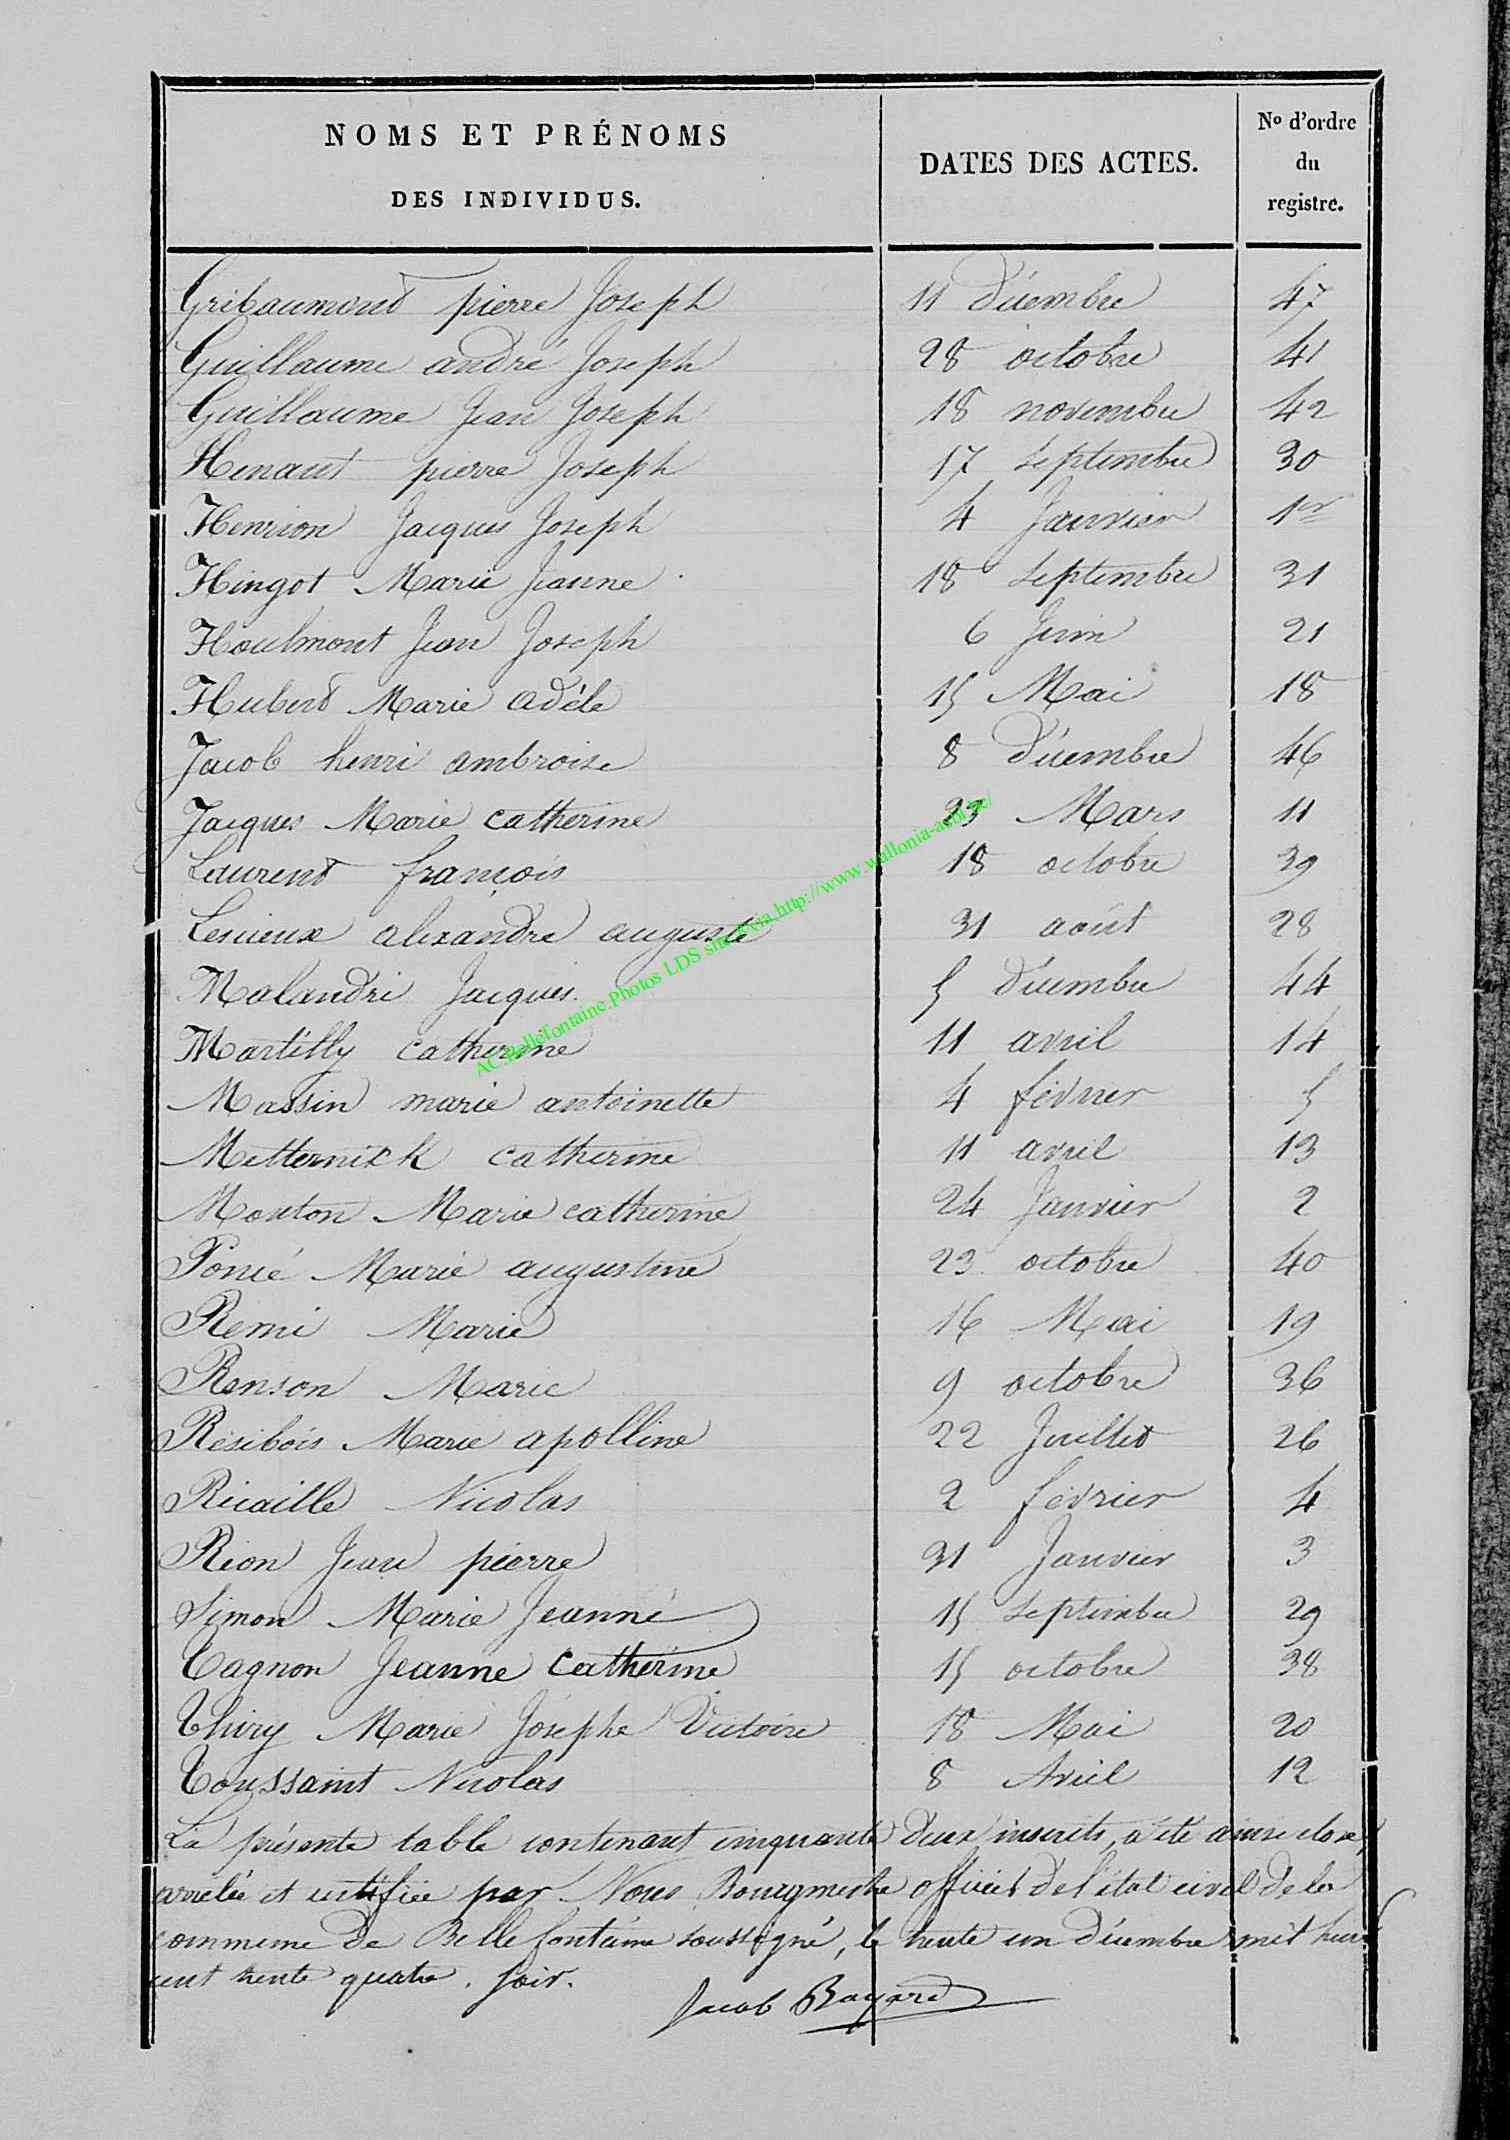 NOMS ET PRÉNOMS
DES INDIVIDUS.
DATES DES ACTES.
No d'ordre
du
registre.
Gribaumont pierre Joseph 11 décembre 47
Guillaume andré Joseph 28 octobre 41
Guillaume Jean Joseph 18 novembre 42
Henaut pierre Joseph 17 septembre 30
Henrion Jacques Joseph 4 Janvier 1er
Hingot Marie Jeanne 18 septembre 31
Houlmont Jean Joseph 6 Juin 21
Hubert Marie adéle 15 Mai 18
Jacob henri ambroise 8 décembre 46
Jacques Marie catherine 23 Mars 11
Laurent françois 18 octobre 39
Lecuieux alexandre auguste 31 août 28
Malandri Jacques 5 décembre 44
Martilly catherine 11 avril 14
Massin marie antoinette 4 février 5
Metternick catherine 11 avril 13
Mouton Marie catherine 24 Janvier 2
Poncé Marie augustine 23 octobre 40
Remi Marie 16 Mai 19
Renson Marie 9 octobre 36
Résibois Marie apolline 22 Juillet 26
Ricaille Nicolas 2 février 4
Rion Jean pierre 31 Janvier 3
Simon Marie Jeanne 15 septembre 29
Tagnon Jeanne Catherine 15 octobre 38
Thiry Marie Joséphe Victoire 18 Mai 20
Toussaint Nicolas 8 Avril 12
La présente table contenant cinquante deux inscrits, a été ainsi close,
arrêtée et certifiée par Nous Bourgmestre officier de l'état civil de la
commune de Bellefontaine soussigné, le trente un décembre mil huit
cent trente quatre. soir.
Jacob Bayard
AC Bellefontaine.Photos LDS sur Geneanet via http://www.wallonia-asbl.be/